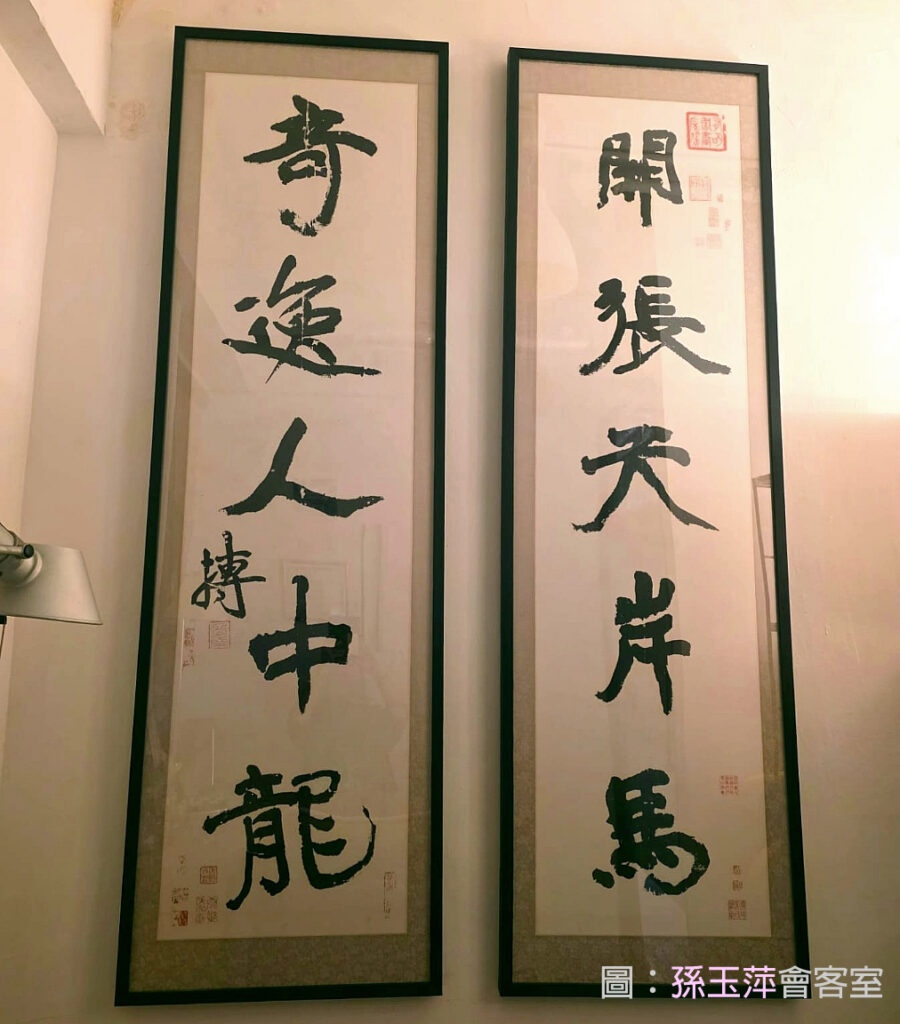 開張天岸馬
奇逸人中龍
摶
圖：孫玉萍會客室